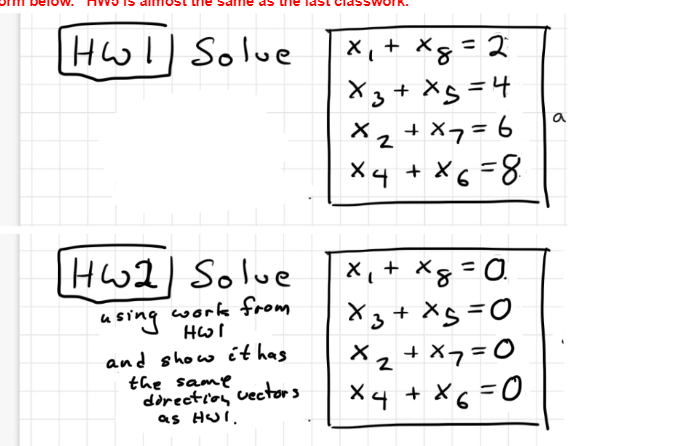 orm below. HW5 is almost the same as the last classwork.
HW1 Solve
x₁ + x₈ = 2
x₃ + x₅ = 4
x₂ + x₇ = 6
x₄ + x₆ = 8
a
HW2 Solve
using work from
HW1
and show it has
the same
direction vectors
as HW1.
x₁ + x₈ = 0.
x₃ + x₅ = 0
x₂ + x₇ = 0
x₄ + x₆ = 0